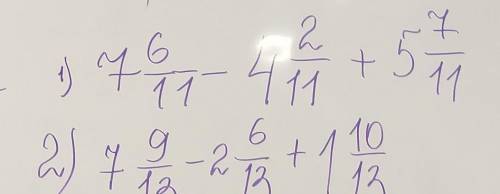 1) 7 6/11 - 4 2/11 + 5 7/11
2) 7 9/12 - 2 6/12 + 1 10/12